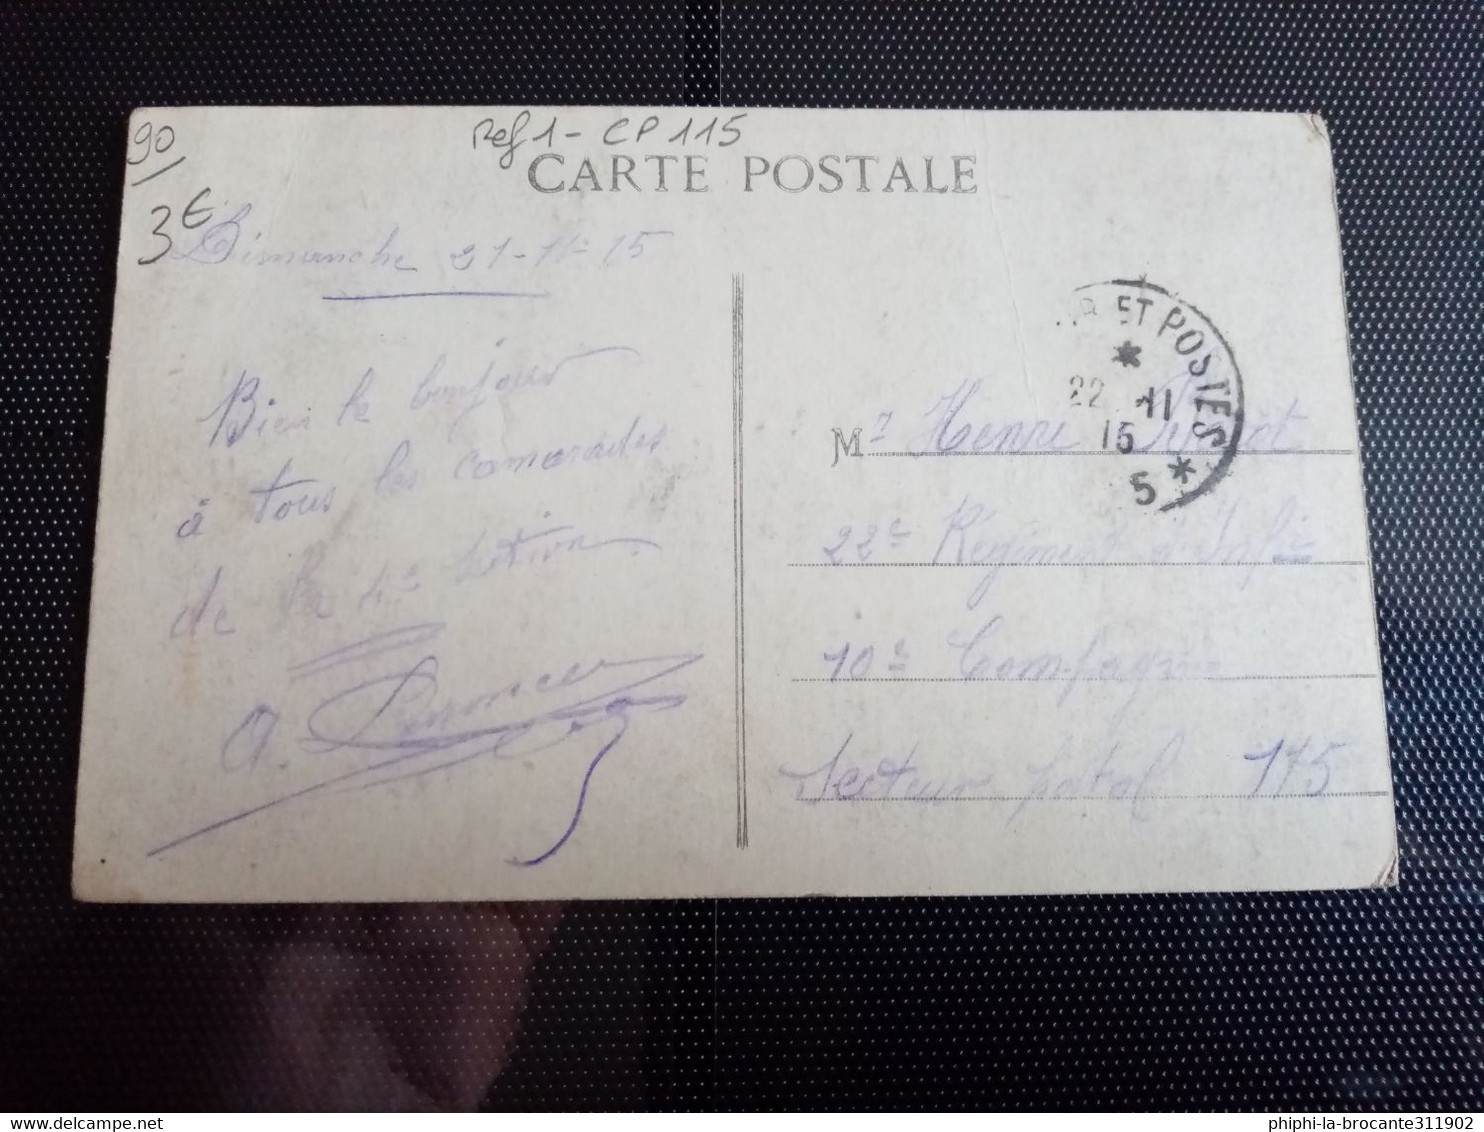 90
3€
Ref 1 - CP 115
CARTE POSTALE
Dimanche 21-11-15
Bien le bonjour
à tous les camarades
de la 4e section
A.
ET POSTES
22 11
15
5 *
Mr Henri
22e Régiment d'Infie
10e Compagnie
Secteur postal 175
delcampe.net
phiphi-la-brocante311902